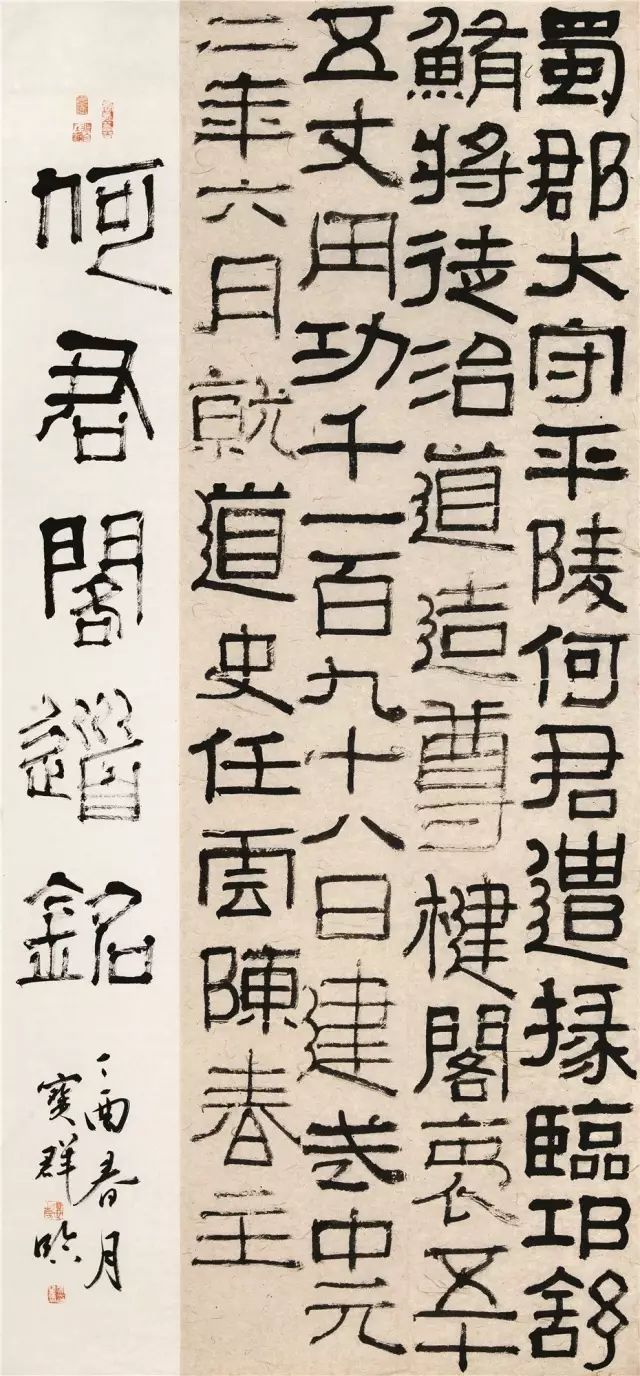 蜀郡大守平陵何君遣掾臨邛舒
鮪將徒治道造尊楗閣袤五十
五丈用功千一百九十八日建武中元
二年六月就道史任雲陳春主
何君閣道銘
丁酉春月
寶群臨